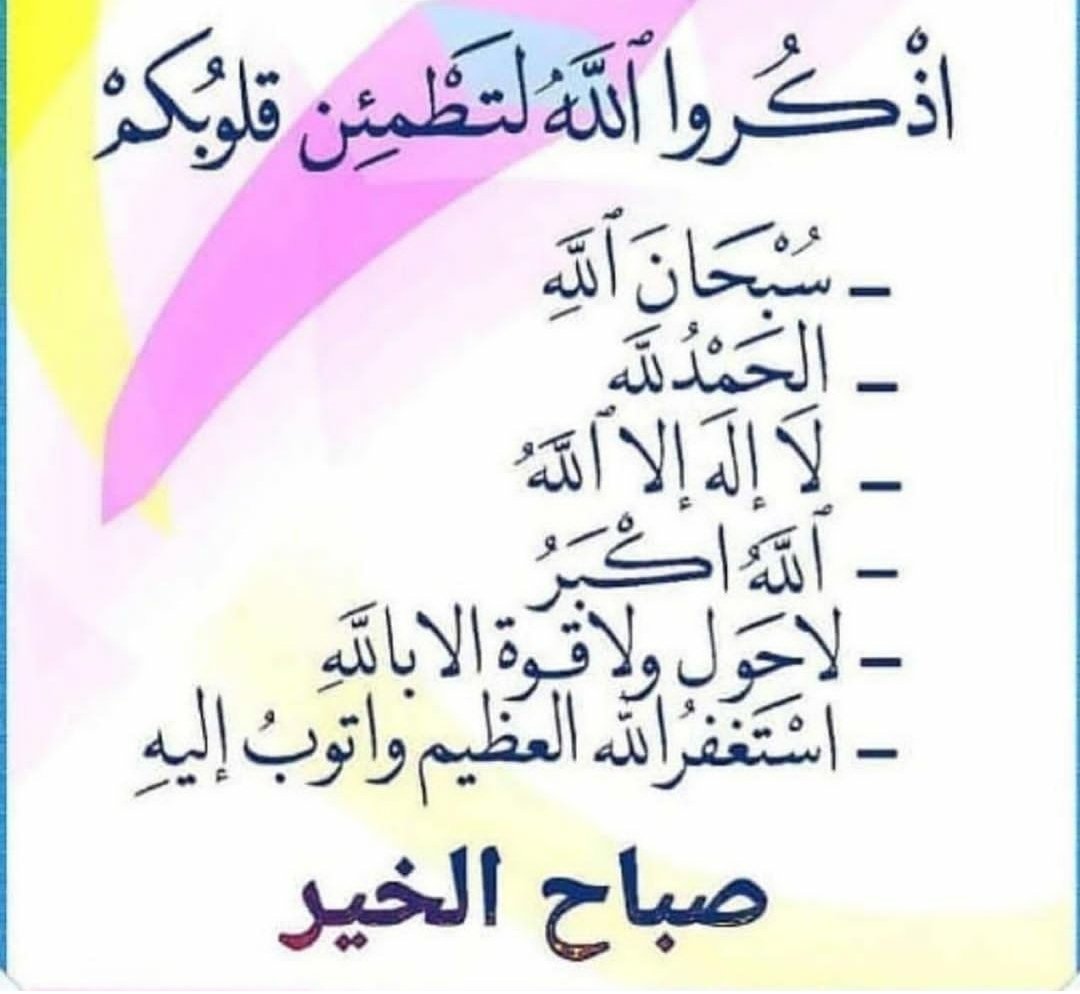 اذْكُروا ٱللَّهُ لتَطْمئِن قلوبُكمْ
– سُبْحَانَ ٱللَّهِ
– الحَمْدُ للَّه
– لَا إلَه إلا ٱللَّهُ
– ٱللَّهُ اكْبَرُ
– لاحَول ولا قوة الا باللَّهِ
– اسْتَغفرُ الله العظيم واتوبُ إليهِ
صباح الخير